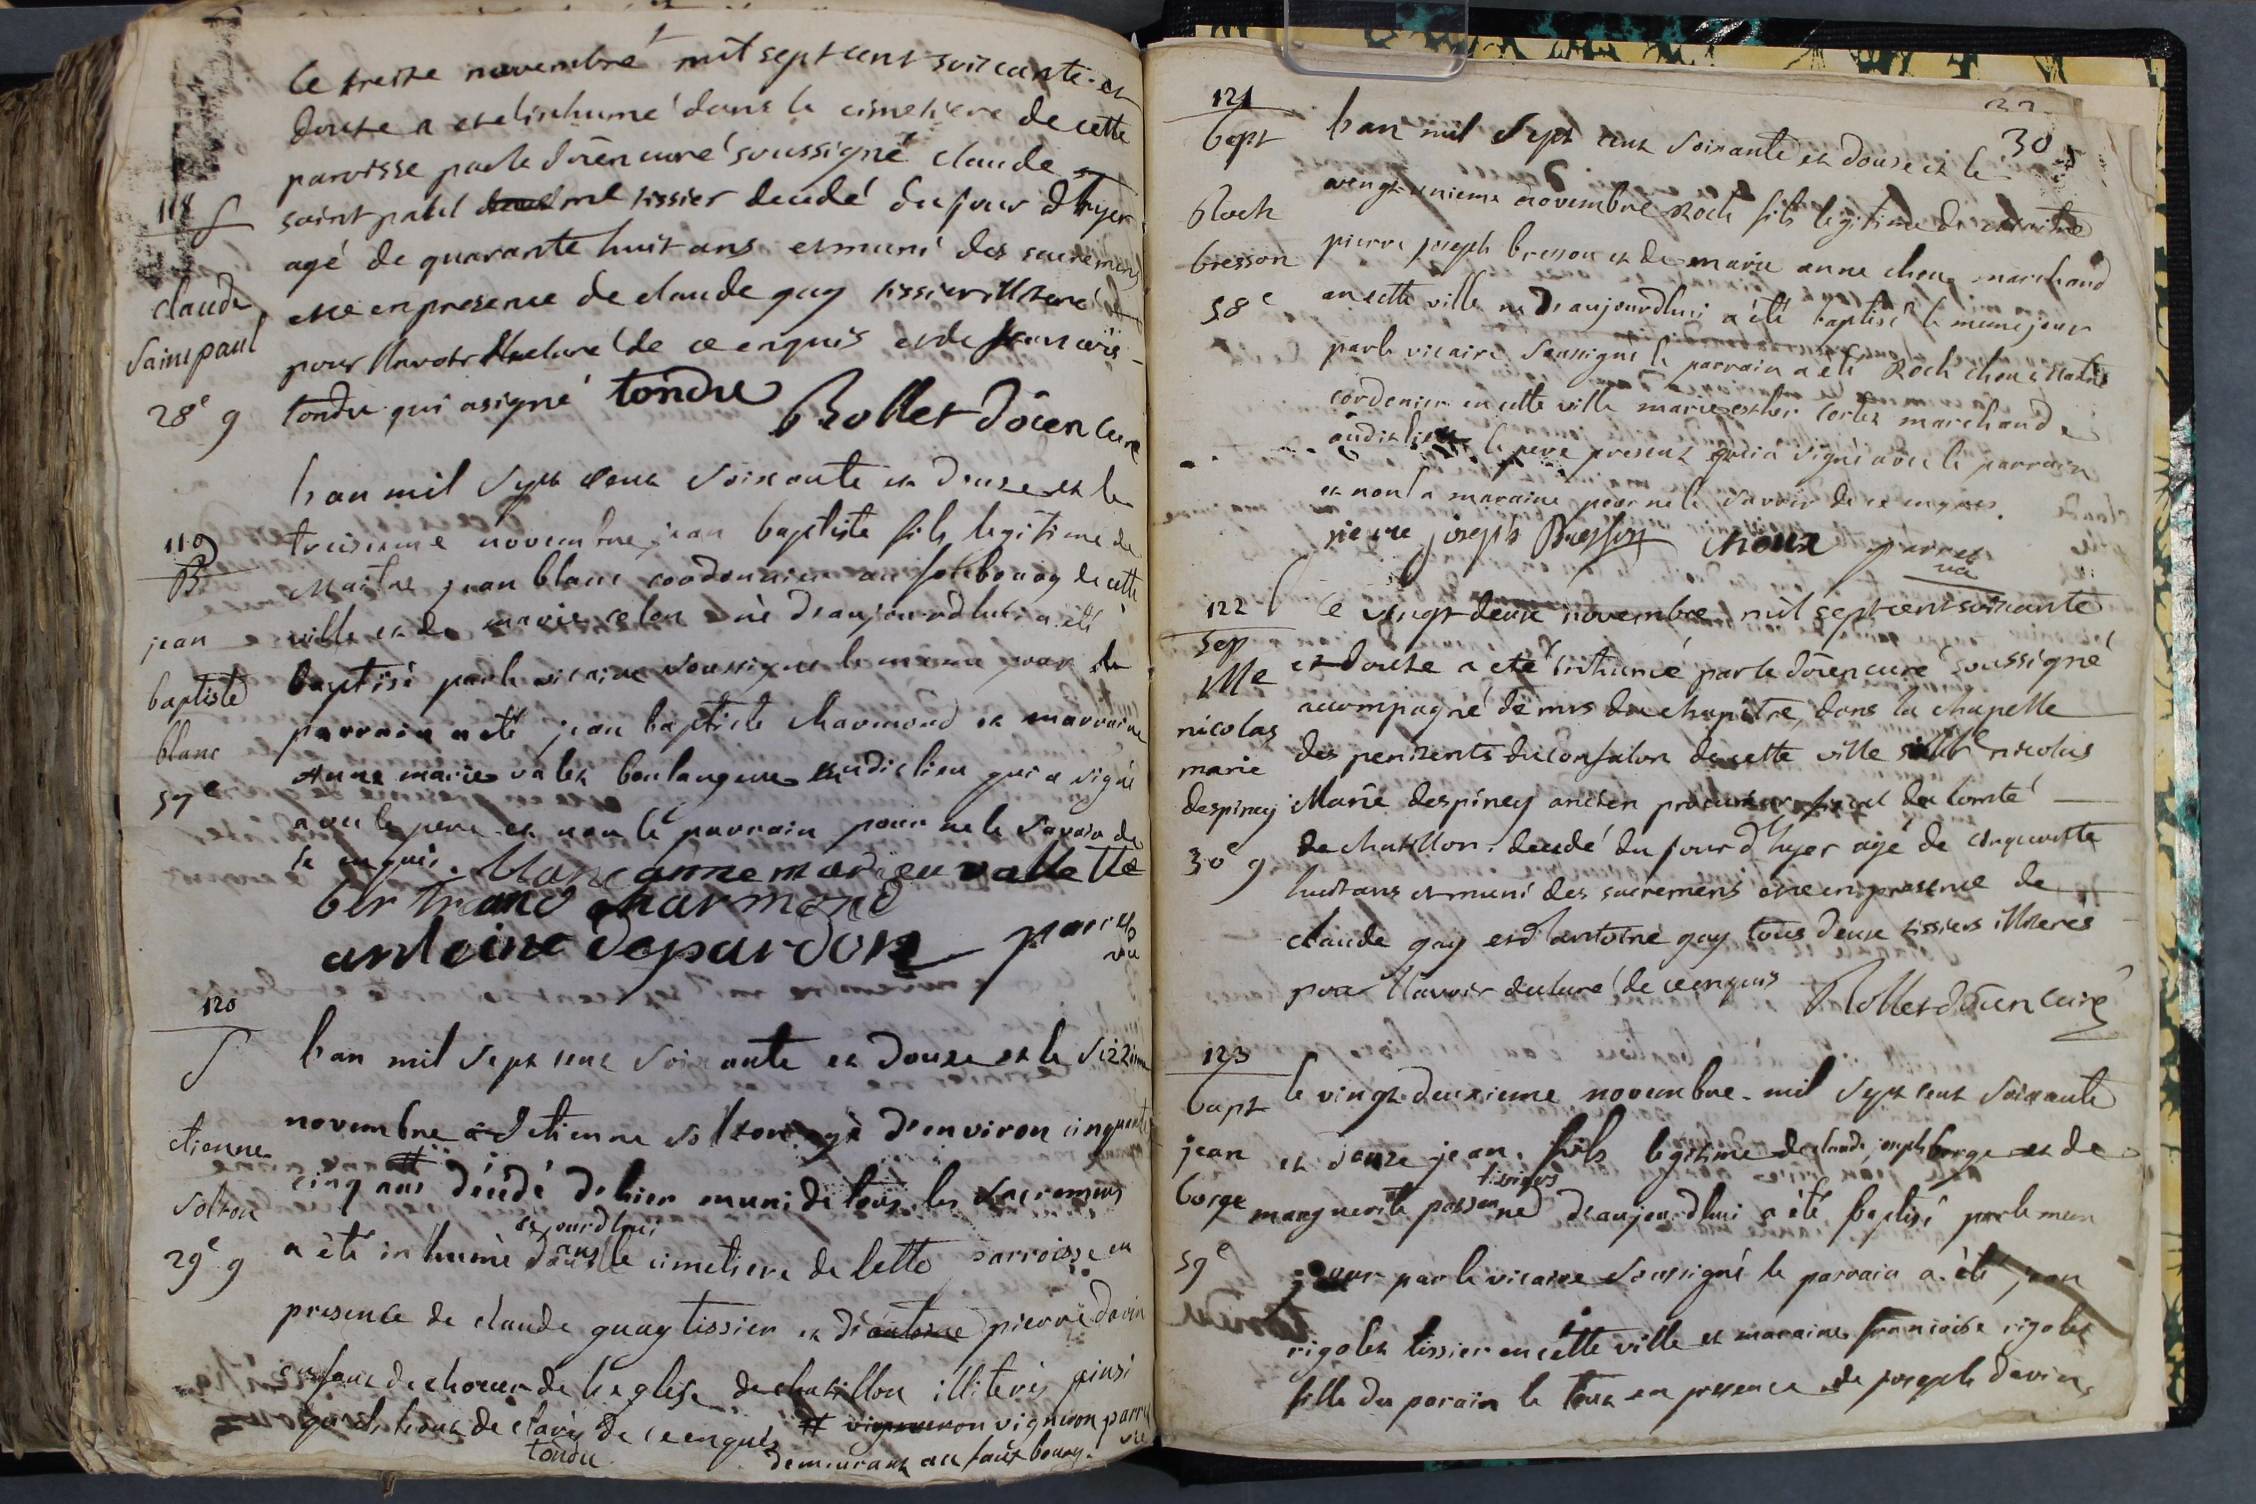 118
S
claude
Saint paul
28e g
le treize novembre mil sept cent soixcante et
douze a eté inhumé dans le cimetiere de cette
paroisse par le doïen curé soussigné claude
saint paul me tissier decedé du jour d'hyer
agé de quarante huit ans et muni des sacremens
ce en presence de claude gay tissier illiteré
pour l'avoir declaré de ce enquis et de francois
tondu qui a signé tondu Rollet doïen curé
119
B
jean
baptiste
blanc
57e
l'an mil sept cent soixante et douze et le
treisieme novembre jean baptiste fils legitime de
Maitre jean blanc cordonnier au fobourg de cette
ville et de marie né d'aujourdhui a été
baptisé par le vicaire soussigné le meme jour le
parrain a été jean baptiste charmond et marraine
anne marie valet boulangere audit lieu qui a signé
avec le pere et non le parrain pour ne le savoir de
ce enquis. blanc anne marieu vallette
bertrand charmond
antoine depardon parret
vic
120
S
etienne
solton
29e g
l'an mil sept cent soixante et douze et le sizzime
novembre etienne solton agé d'environ cinquante
cinq ans # décédé de hier muni de tous les sacremens
aujourdhui
a été inhumé dans le cimetiere de cette parroisse en
presence de claude guay tissier et d'antoine pierre davin
enfant de choeur de l'eglise de chatillon illiterés ainsi
qu'ils l'ont declaré de ce enquis # vigneron vigneron parret
tondu demeurant au faux bourg. vic
22
30
121
bapt
Roch
bresson
58e
l'an mil sept cent soixante et douze et le
vengt unieme novembre Roch fils legitime de maitre
pierre joseph bresson et de marie anne choux marchand
en cette ville né d'aujourdhui a été baptisé le meme jour
par le vicaire soussigné le parrain a été Roch choux maitre
cordonier en cette ville marie esther cortet marchande
audit lieu le pere present qui a signé avec le parrain
et non la maraine pour ne le savoir de ce enquis.
pierre joseph Bresson choux parret
vic
122
sep
Mre
nicolas
marie
despiney
30e g
le vingt deux novembre mil sept cent soixante
et douze a eté inhumé par le doïen curé soussigné
accompagné de mrs du chapitre, dans la chapelle
des penitents du confalon de cette ville sieur nicolas
Marie despiney ancien procureur fiscal du comté
de chatillon. decedé du jour d'hyer agé de cinquante
huit ans et muni des sacremens ce en presence de
claude gay et d'antoine gay tous deux tissiers illiterés
pour l'avoir declaré de ce enquis Rollet doïen curé
123
bapt
jean
borge
59e
le vingt deuxieme novembre mil sept cent soixante
et douze jean fils legitime de claude joseph borge et de
tissiers
marguerite né d'aujourdhui a été baptisé par le mem
jour par le vicaire soussigné le parrain a été jean
rigolet tissier en cette ville et maraine francoise rigolet
fille du parain le tout en presence de joseph davin